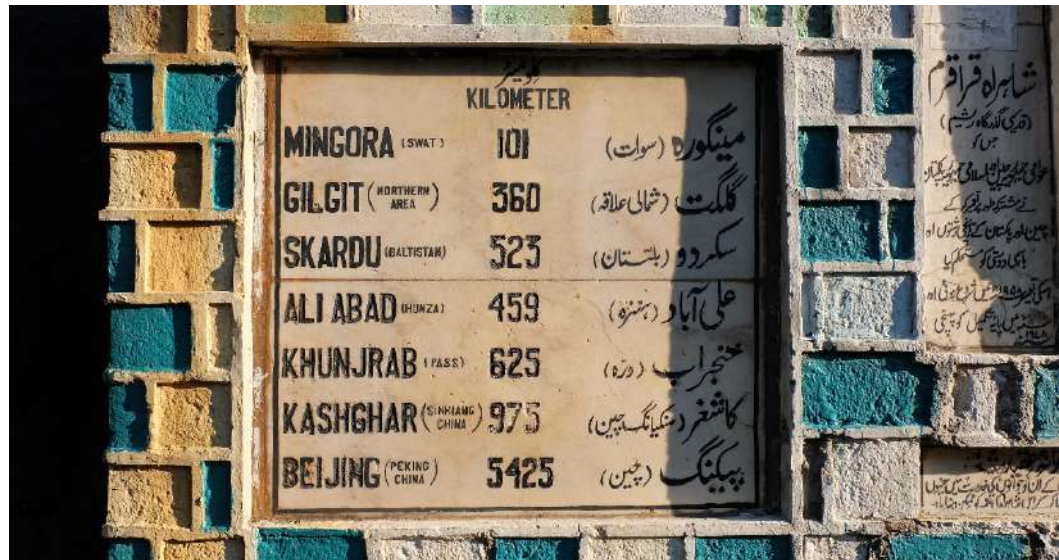 کلومیٹر
KILOMETER
MINGORA (SWAT) 101 مینگورہ (سوات)
GILGIT (NORTHERN AREA) 360 گلگت (شمالی علاقہ)
SKARDU (BALTISTAN) 523 سکردو (بلتستان)
ALI ABAD (HUNZA) 459 علی آباد (ہنزہ)
KHUNJRAB (PASS) 625 خنجراب (درہ)
KASHGHAR (SINKIANG CHINA) 975 کاشغر (سنکیانگ چین)
BEIJING (PEKING CHINA) 5425 پیکنگ (چین)
شاہراہ قراقرم
(قدیمی گذرگاہ ریشم)
جس کو
چین اور پاکستان کے
باہمی دوستی کو مستحکم کیا